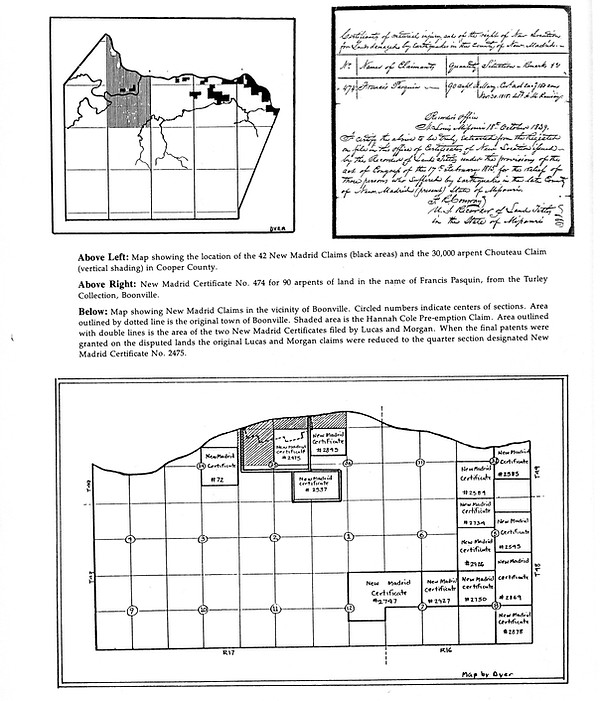 Certificate of material injury, and of the right of New Location
for Lands damaged by Earthquakes in the County of New Madrid.
No. Names of Claimants Quantity Situation – Remarks &c
474 Francis Pasquin 90
Recorders Office
St Louis Missouri 18th October 1839.
I certify the above to be truly extracted from the Registry
on file in this office of Certificates of New Location issued
by the Recorder of Land Titles under the provisions of the
act of Congress of the 17th February 1815 for the relief of
those persons who suffered by Earthquakes in the late County
of New Madrid (present) State of Missouri
F R Conway
U.S. Recorder of Land Titles
in the State of Missouri
DYER
Above Left: Map showing the location of the 42 New Madrid Claims (black areas) and the 30,000 arpent Chouteau Claim
(vertical shading) in Cooper County.
Above Right: New Madrid Certificate No. 474 for 90 arpents of land in the name of Francis Pasquin, from the Turley
Collection, Boonville.
Below: Map showing New Madrid Claims in the vicinity of Boonville. Circled numbers indicate centers of sections. Area
outlined by dotted line is the original town of Boonville. Shaded area is the Hannah Cole Pre-emption Claim. Area outlined
with double lines is the area of the two New Madrid Certificates filed by Lucas and Morgan. When the final patents were
granted on the disputed lands the original Lucas and Morgan claims were reduced to the quarter section designated New
Madrid Certificate No. 2475.
New Madrid
Certificate
# 2475
New Madrid
Certificate
# 2893
New Madrid
Certificate
# 72
New Madrid
Certificate
# 2537
New Madrid
Certificate
# 2585
New Madrid
Certificate
# 2589
New Madrid
Certificate
New Madrid
Certificate
# 2595
New Madrid
Certificate
New Madrid
Certificate
# 2747
New Madrid
Certificate
# 2427
New Madrid
Certificate
# 2750
New Madrid
Certificate
# 2869
New Madrid
Certificate
# 2878
4 3 2 1 6
9 10 11 12 7 8
T49
T48
T48
R17
R16
Map by Dyer